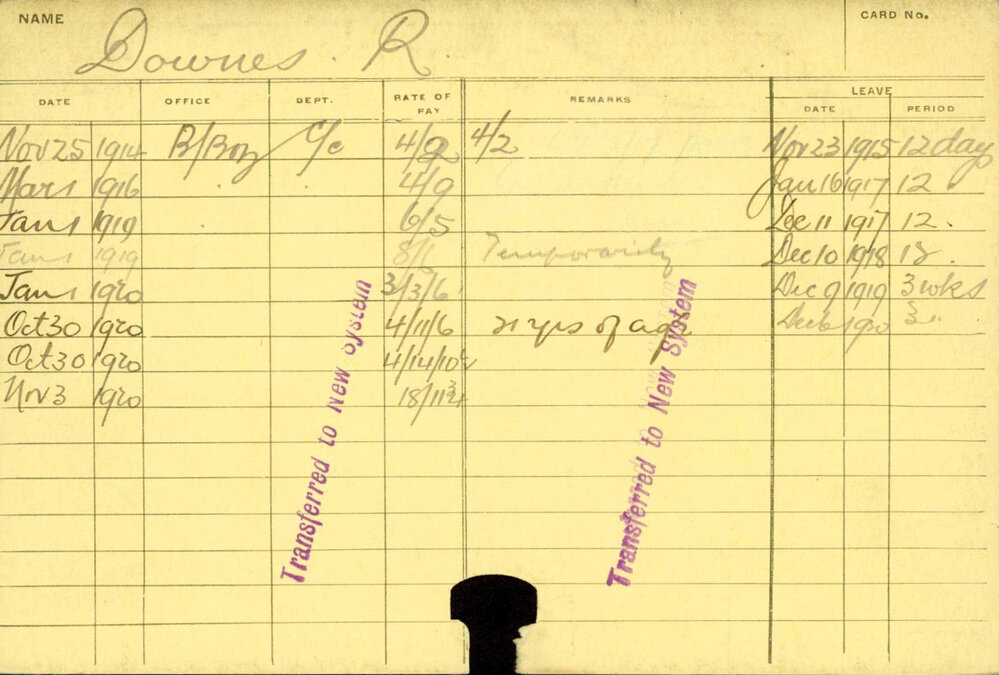 NAME
CARD No.
Downes. R.
DATE OFFICE DEPT. RATE OF PAY REMARKS LEAVE
DATE PERIOD
Nov 25 1914 B/Boy C/c 4/2 4/2 Nov 23 1915 12 days
Mar 1 1916 4/9 Jan 16 1917 12.
Jan 1 1919 6/5 Dec 11 1917 12.
Jan 1 1919 8/1 Temporarily Dec 10 1918 12.
Jan 1 1920 3/3/6 Dec 9 1919 3 wks
Oct 30 1920 4/11/6 21 yrs of age Dec 6 1920 3 "
Oct 30 1920 4/14/10½
Nov 3 1920 18/11¾
Transferred to New System
Transferred to New System